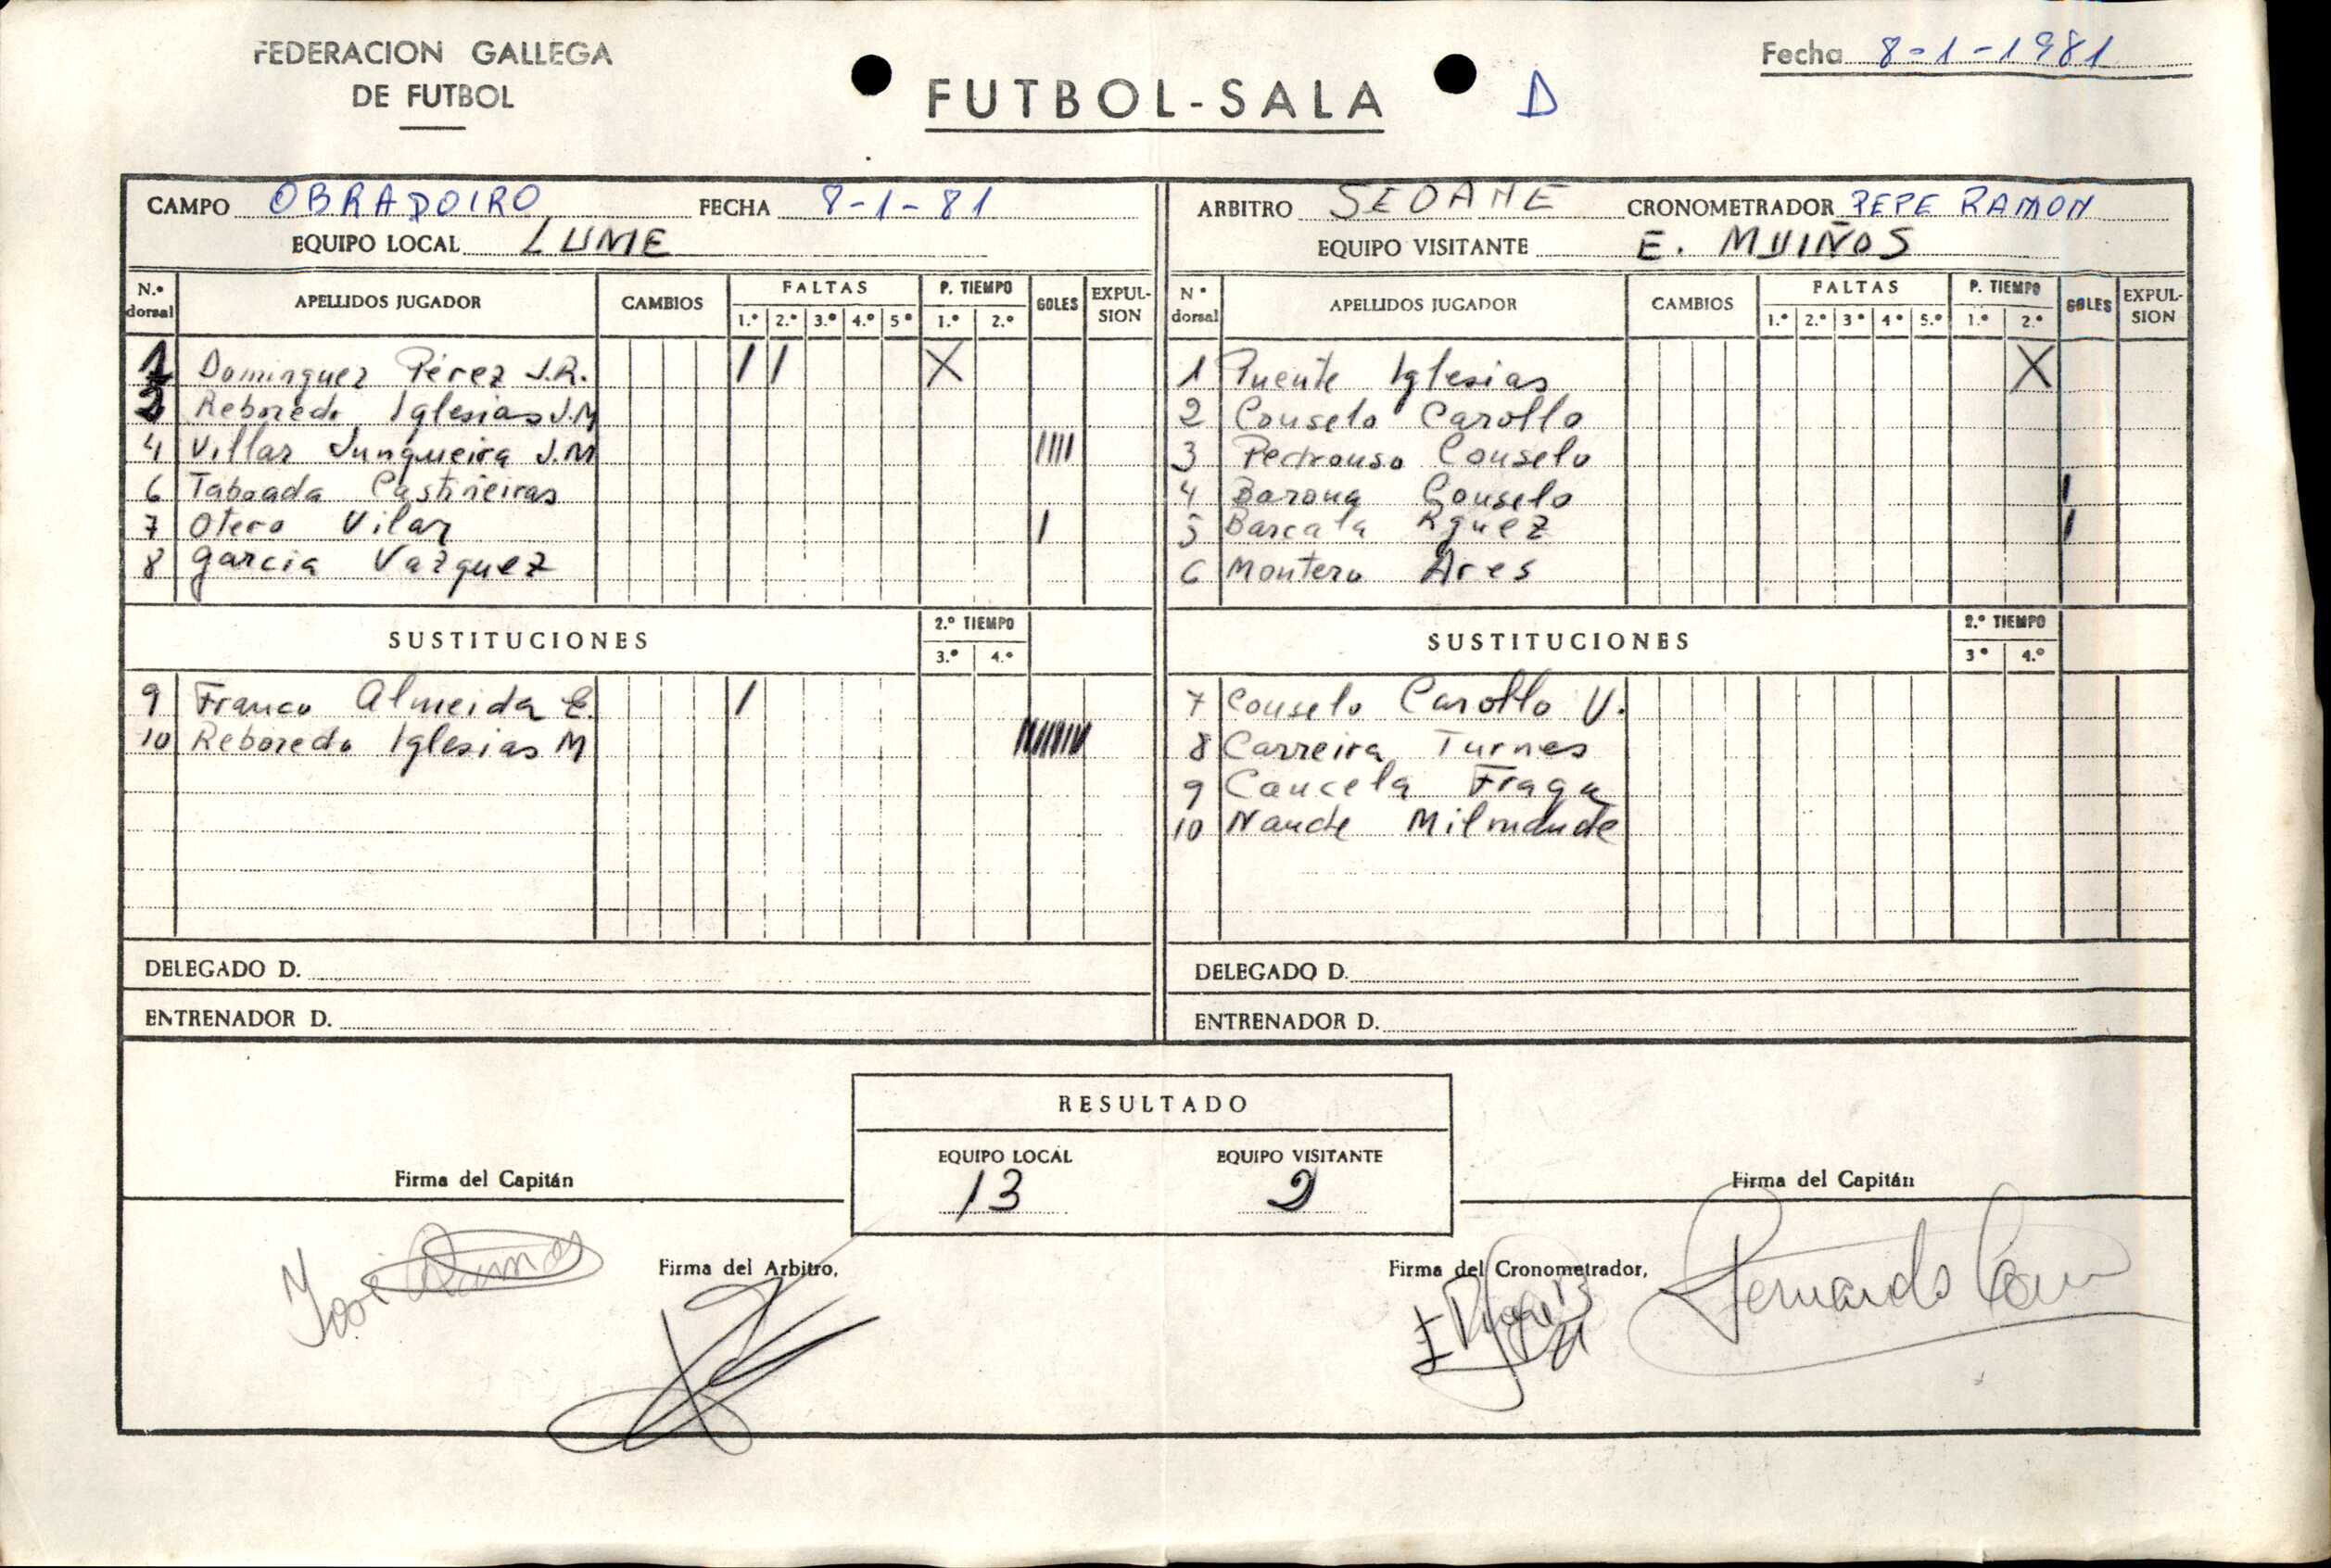 FEDERACION GALLEGA
DE FUTBOL
FUTBOL-SALA D
Fecha 8-1-1981
CAMPO OBRADOIRO FECHA 8-1-81
EQUIPO LOCAL LUME
ARBITRO SEOANE CRONOMETRADOR PEPE RAMON
EQUIPO VISITANTE E. MUIÑOS
N.º dorsal APELLIDOS JUGADOR CAMBIOS FALTAS 1.º 2.º 3.º 4.º 5º P. TIEMPO 1.º 2.º GOLES EXPULSION
1 Dominguez Pérez J.R. I I X
2 Reboredo Iglesias J.M
4 Villar Junqueira J.M IIII
6 Taboada Castiñeiras
7 Otero Vilar I
8 Garcia Vazquez
SUSTITUCIONES 2.º TIEMPO 3.º 4.º
9 Franco Almeida E. I
10 Reboredo Iglesias M IIIIIIII
DELEGADO D.
ENTRENADOR D.
Nº dorsal APELLIDOS JUGADOR CAMBIOS FALTAS 1.º 2.º 3º 4º 5.º P. TIEMPO 1.º 2.º GOLES EXPULSION
1 Puente Iglesias X
2 Couselo Carollo
3 Pedrouso Couselo
4 Barona Couselo I
5 Barcala Rguez I
6 Montero Ares
SUSTITUCIONES 2.º TIEMPO 3º 4.º
7 Couselo Carollo V.
8 Carreira Turnes
9 Cancela Fraga
10 Nande Milmande
DELEGADO D.
ENTRENADOR D.
RESULTADO
EQUIPO LOCAL EQUIPO VISITANTE
13 2
Firma del Capitán
Firma del Capitán
José Ramos
Firma del Arbitro,
Firma del Cronometrador,
Fernando